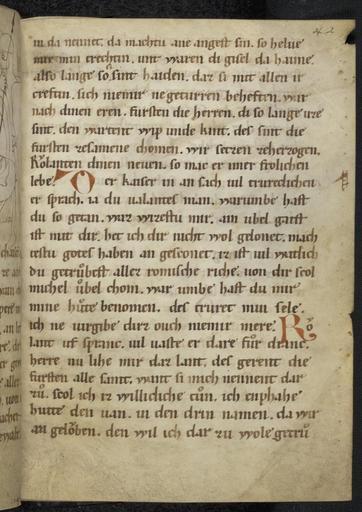 in da nennet. da machtu ane angest sin. so helue
mir min trechtin. unt waren di gisel da haime.
also lange so sint haiden. dar zi mit allen ir
creftin. sich nemir ne geturren beheften. wir
nach dinen eren. fursten die herren. di so lange ure
sint. den wartent wip unde kint. des sint die
fursten zesamene chomen. wir setzen zeherzogen.
Rolanten dinen neuen. so mac er imer frolichen
lebe. Der kaiser in an sach uil trureclichen
er sprach. ia du ualantes man. warumbe hast
du so getan. war wirrestu mir. ain ubel gaist
ist mit dir. het ich dir nicht wol gelonet. mach
testu gotes haben an gesconet. iz ist uil watlich
du getrůbest aller romische riche. uon dir scol
michel ůbel chom. war umbe hast du mir
mine hůte benomen. des truret min sele.
ich ne uirgibe dirz ouch niemir mere. Rů
lant uf spranc. uil uaste er dare fůr dranc.
herre nu lihe mir daz lant. des gerent die
fůrsten alle samt. want si mich nennent dar
zů. scol ich iz willicliche tůn. ich enphahe
hiute den uan. in den drin namen. da wir
an gelŏben. den wil ich dar zu wole getrů